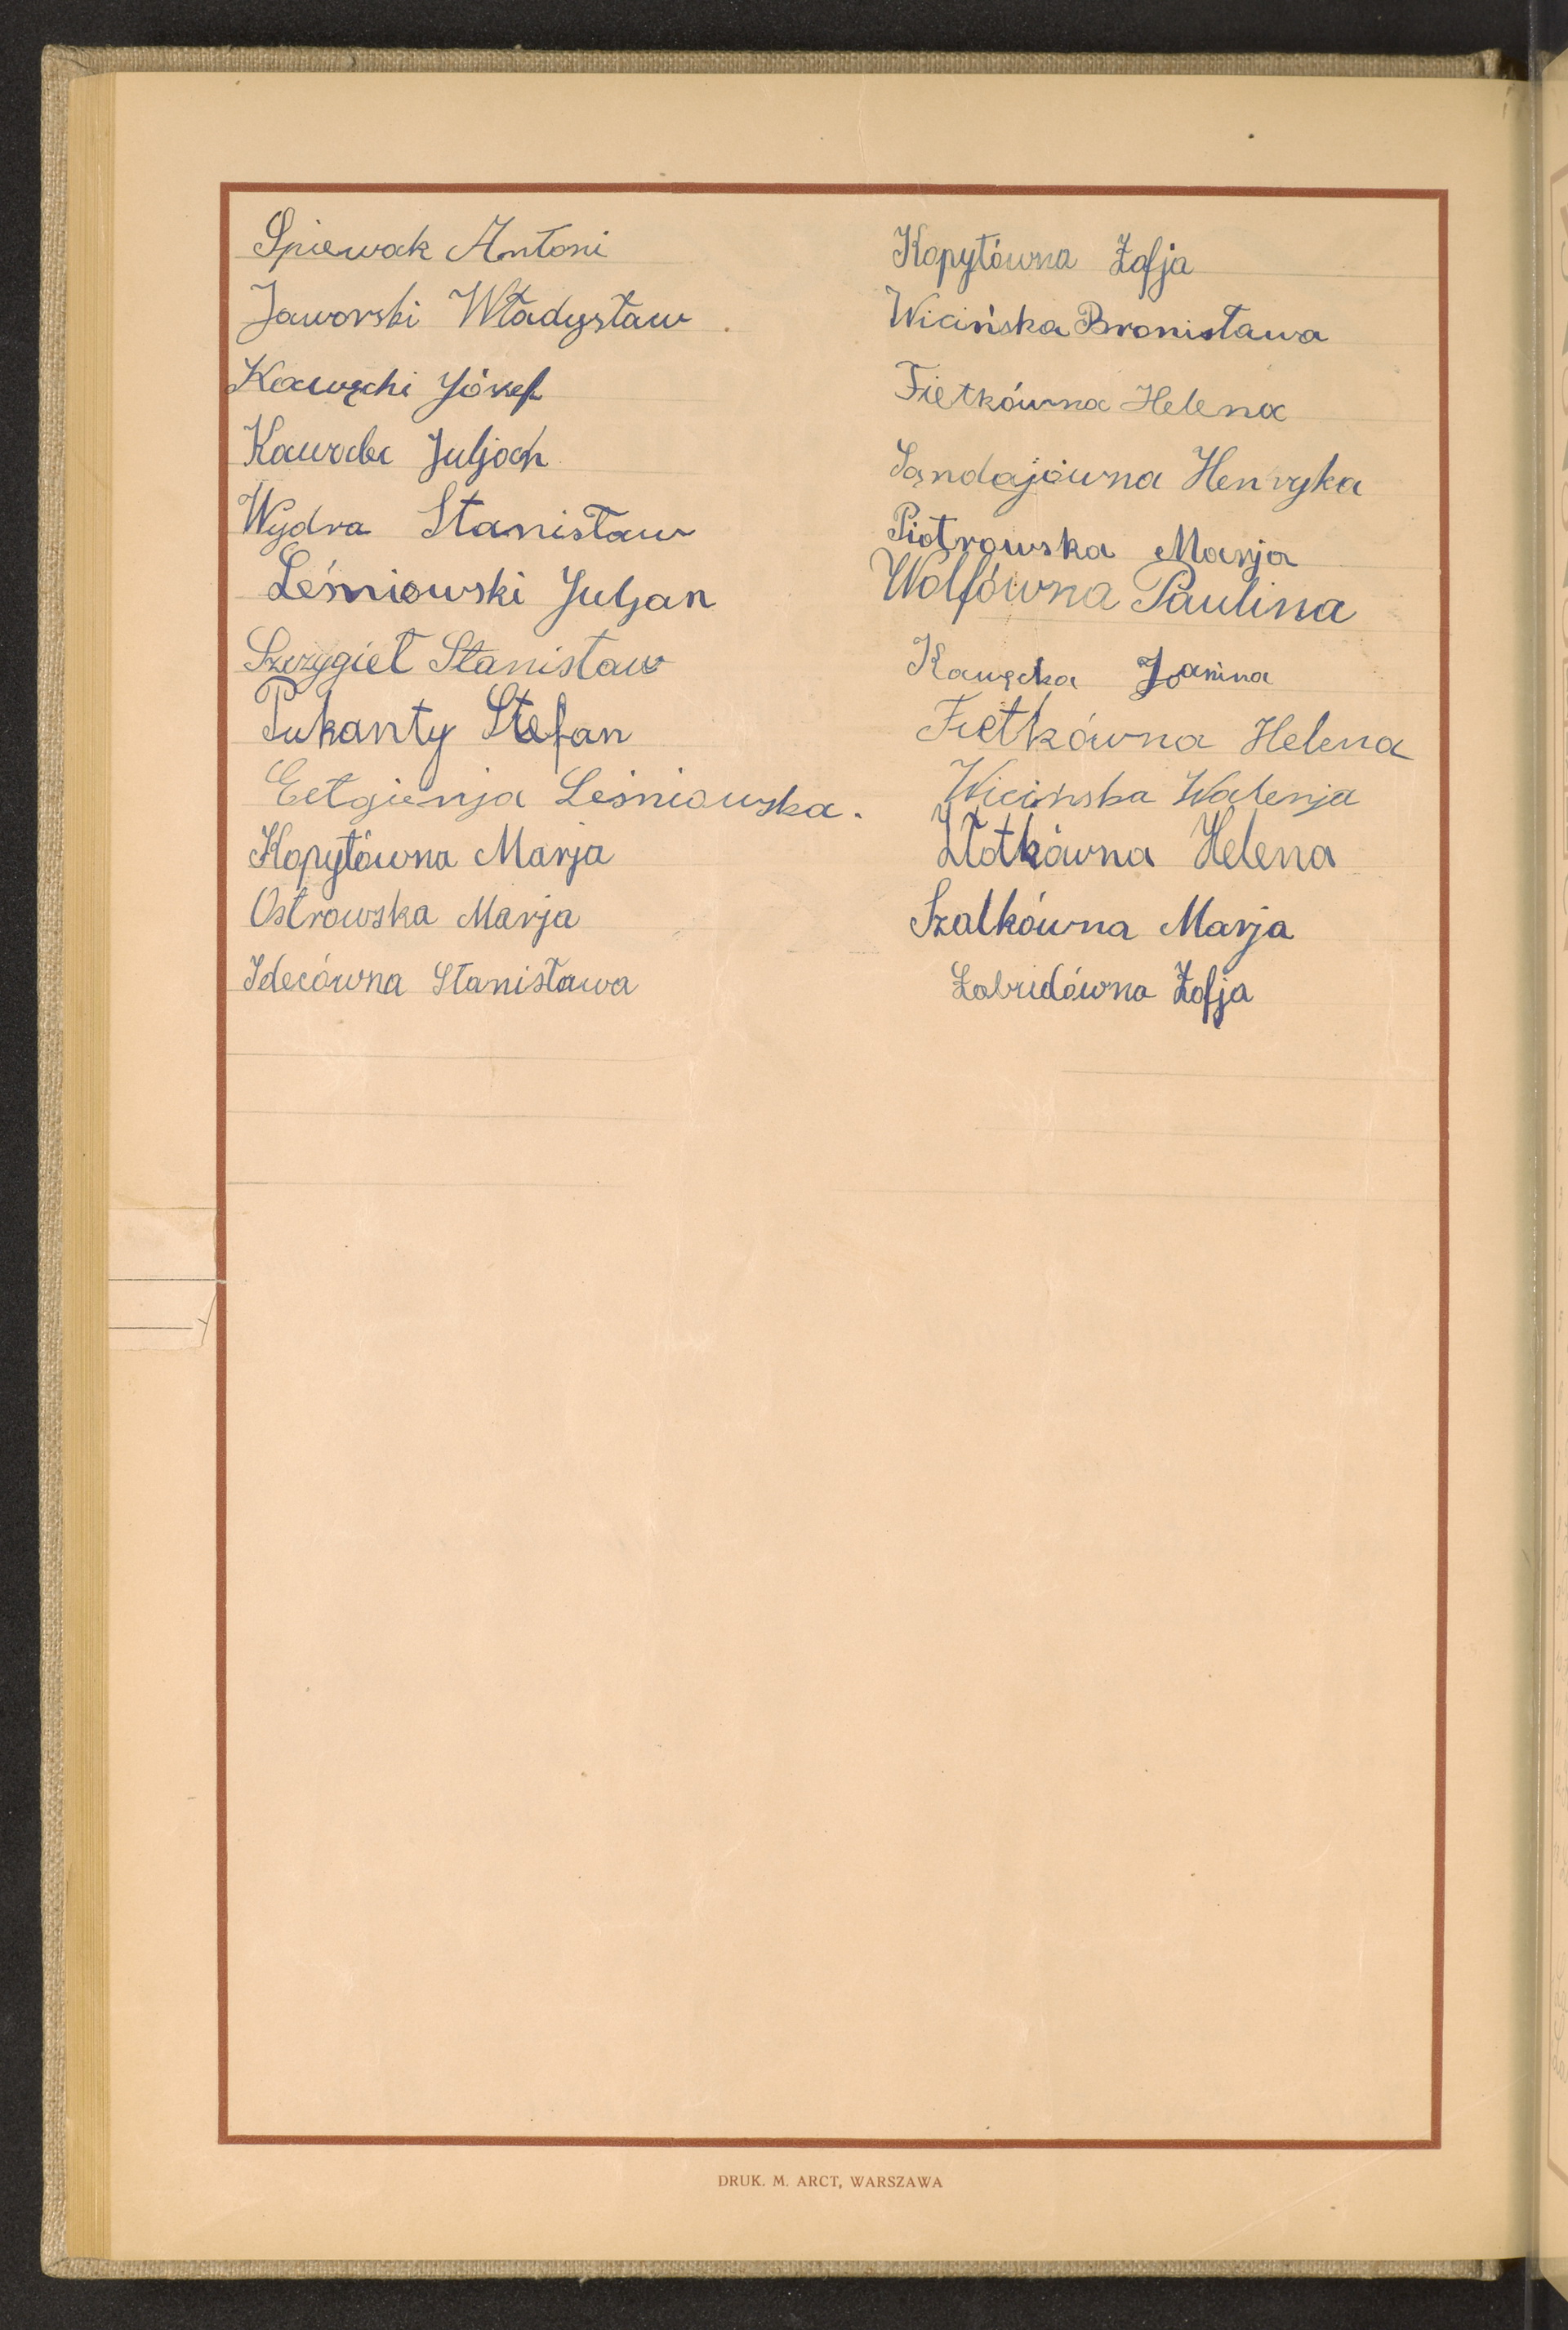 Spiewak Antoni
Jaworski Władysław
Kawęcki Józef
Juljan
Wydra Stanisław
Leśniowski Juljan
Szczygieł Stanisław
Pukanty Stefan
Eugienja Leśniowska.
Kopytówna Marja
Ostrowska Marja
Idecówna Stanisława
Kopytówna Zofja
Wicińska Bronisława
Fietkówna Helena
Sandajówna Henryka
Piotrowska Marja
Wolfówna Paulina
Kawęcka Janina
Fietkówna Helena
Wicińska Walerja
Złotkówna Helena
Szalkówna Marja
Zofja
DRUK. M. ARCT, WARSZAWA